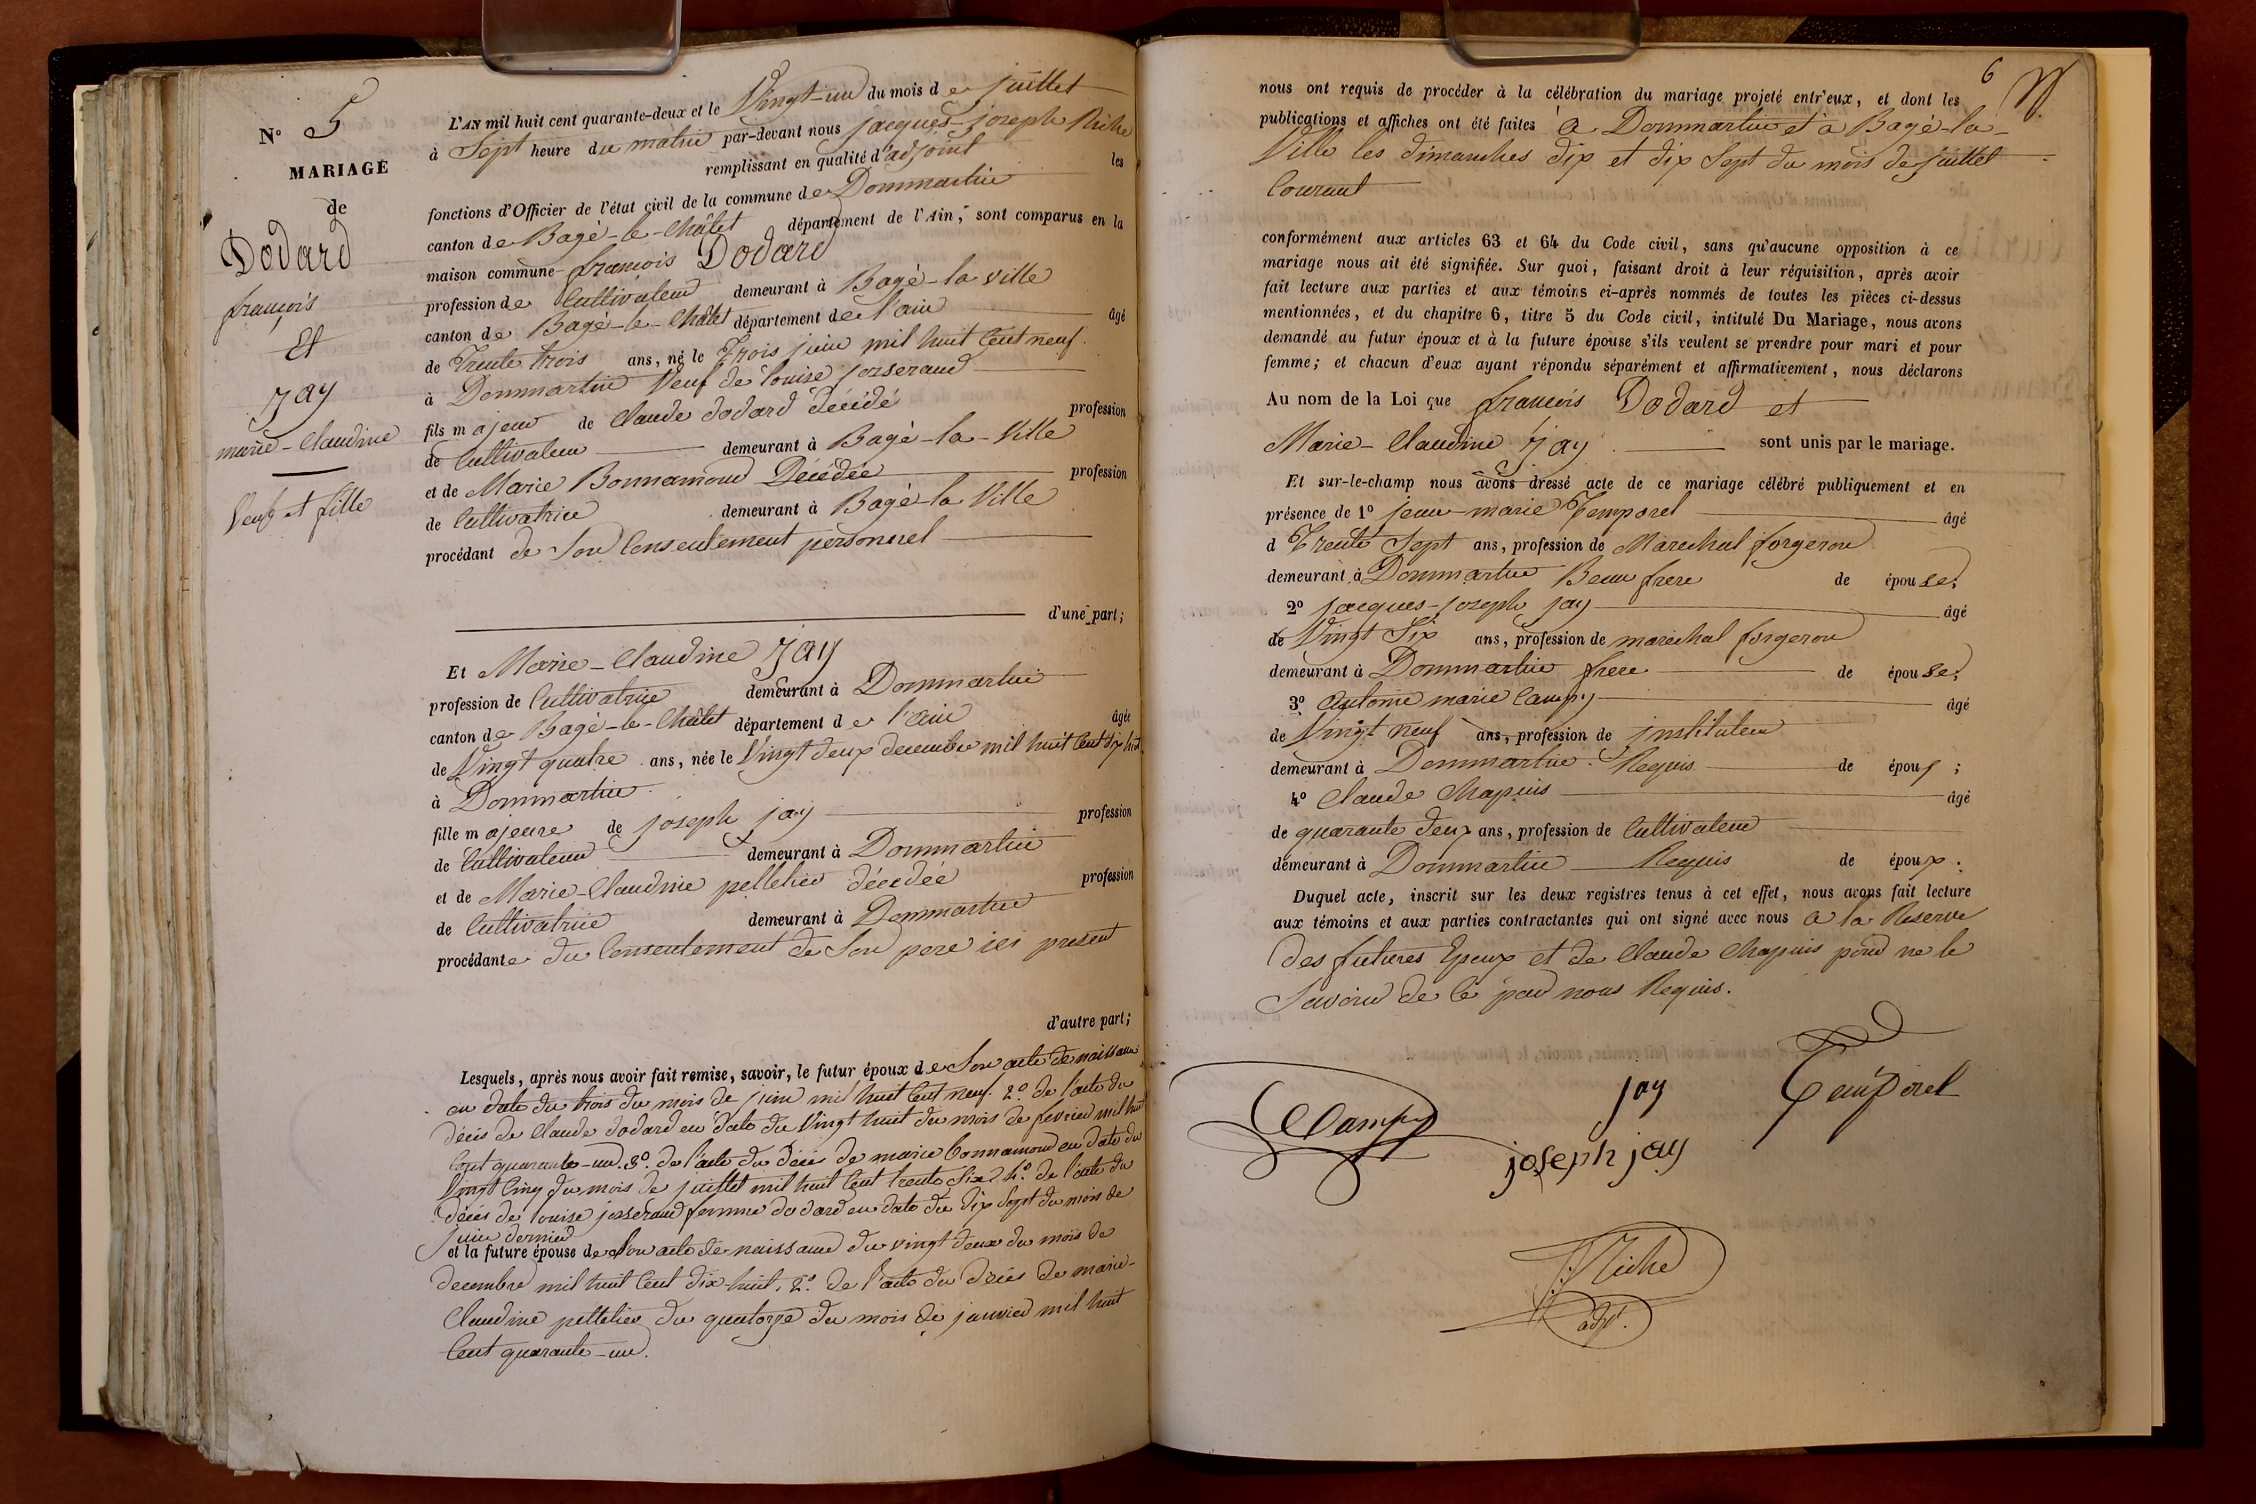 N° 5
MARIAGE
de
Dodard
françois
Et
Jay
marie-Claudine
Veuf et fille
L'AN mil huit cent quarante-deux et le Vingt-un du mois de juillet
à Sept heure du matin par-devant nous jacques-joseph Riche
remplissant en qualité d'adjoint les
fonctions d'Officier de l'état civil de la commune de Dommartin
canton de Bagé-le-Châtel département de l'Ain, sont comparus en la
maison commune françois Dodard
profession de Cultivateur demeurant à Bagé-la ville
canton de Bagé-le-Châtel département de l'ain âgé
de Trente trois ans, né le Trois juin mil huit Cent neuf.
à Dommartin Veuf de louise josserand
fils majeur de Claude dodard décédé profession
de Cultivateur demeurant à Bagé-la-Ville
et de Marie Bonnamour Décédée profession
de Cultivatrice demeurant à Bagé-la Ville
procédant de Son Consentement personnel
d'une part;
Et Marie-Claudine Jay
profession de Cultivatrice demeurant à Dommartin
canton de Bagé-le-Châtel département de l'ain âgée
de Vingt quatre ans, née le Vingt deux decembre mil huit Cent dix huit
à Dommartin.
fille majeure de joseph jay profession
de Cultivateur demeurant à Dommartin
et de Marie-Claudine pelletier décedée profession
de Cultivatrice demeurant à Dommartin
procédante du Consentement de Son pere ici present
d'autre part;
Lesquels, après nous avoir fait remise, savoir, le futur époux de Son acte de naissance
en date du trois du mois de juin mil huit Cent neuf. 2.° de l'acte du
décès de Claude dodard en date du Vingt huit du mois de fevrier mil huit
Cent quarante-un. 3.° de l'acte du décès de marie bonnamour en date du
Vingt Cinq du mois de juillet mil huit Cent trente Six. 4.° de l'acte du
décès de louise josserand femme dodard en date du dix Sept du mois de
juin dernier
et la future épouse de Son acte de naissance du vingt deux du mois de
decembre mil huit Cent dix-huit. 2.° de l'acte du décès de marie-
Claudine pelletier du quatorze du mois de janvier mil huit
Cent quarante-un.
6
nous ont requis de procéder à la célébration du mariage projeté entr'eux, et dont les
publications et affiches ont été faites à Dommartin et à Bagé-la-
Ville les dimanches dix et dix Sept du mois de juillet
Courant
conformément aux articles 63 et 64 du Code civil, sans qu'aucune opposition à ce
mariage nous ait été signifiée. Sur quoi, faisant droit à leur réquisition, après avoir
fait lecture aux parties et aux témoins ci-après nommés de toutes les pièces ci-dessus
mentionnées, et du chapitre 6, titre 5 du Code civil, intitulé Du Mariage, nous avons
demandé au futur époux et à la future épouse s'ils veulent se prendre pour mari et pour
femme; et chacun d'eux ayant répondu séparément et affirmativement, nous déclarons
Au nom de la Loi que françois Dodard et
Marie-Claudine Jay sont unis par le mariage.
Et sur-le-champ nous avons dressé acte de ce mariage célébré publiquement et en
présence de 1° jean-marie Temporel âgé
d Trente Sept ans, profession de Marechal forgeron
demeurant à Dommartin Beau frere de épouse;
2° jacques-joseph jay âgé
de Vingt Six ans, profession de marechal forgeron
demeurant à Dommartin frere de épouse;
3° antoine marie Campy âgé
de Vingt neuf ans, profession de instituteur
demeurant à Dommartin. Requis de époux;
4° Claude Chapuis âgé
de quarante deux ans, profession de Cultivateur
demeurant à Dommartin Requis de époux.
Duquel acte, inscrit sur les deux registres tenus à cet effet, nous avons fait lecture
aux témoins et aux parties contractantes qui ont signé avec nous a la Reserve
des futures Epoux et de Claude Chapuis pour ne le
Savoir de Ce par nous Requis.
Campy
jay
Temporel
joseph jay
Riche
adj.